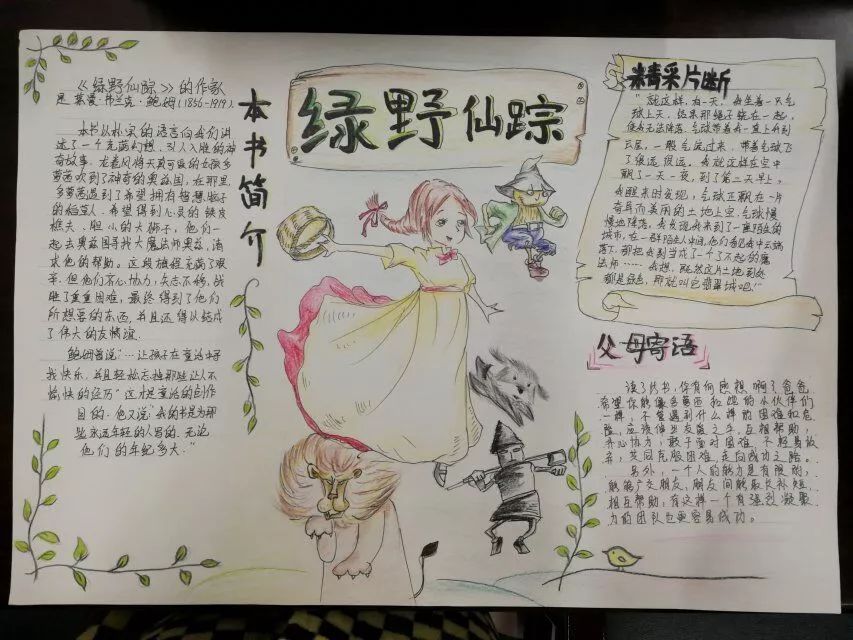 绿野仙踪
本书简介
《绿野仙踪》的作家
是莱曼·弗兰克·鲍姆(1856-1919).
本书从朴实的语言向我们讲
述了一个充满幻想、引人入胜的神
奇故事。龙卷风将天真可爱的女孩多
萝茜吹到了神奇的奥兹国,在那里,
多萝茜遇到了希望拥有智慧脑子
的稻草人、希望得到心灵的铁皮
樵夫、胆小的大狮子,他们一
起去奥兹国寻找大魔法师奥兹,请
求他的帮助。这段旅程充满了艰
辛.但他们齐心协力,矢志不移,战
胜了重重困难,最终得到了他们
所想要的东西,并且还得以结成
了伟大的友情谊.
鲍姆曾说:“…让孩子在童话中寻
找快乐,并且轻松忘掉那些让人不
愉快的经历”这才是童话的创作
目的.他又说“我的书是为那
些永远年轻的人写的.无论
他们的年纪多大.”
精采片断
“就这样,有一天,我坐着一只气
球上天,结果那绳子绕在一起,
使我无法降落.气球带着我一直上升到
云层,一股气流过来,带着气球飞
了很远很远。我就这样在空中
飘了一天一夜,到了第二天早上,
我醒来时发现,气球正飘在一片
奇异而美丽的土地上空.气球慢
慢地降落,我发现我来到了一座陌生的
城市,在一群陌生人中间,他们看见我从云端
落下,都把我当成了一个了不起的魔
法师……我想,既然这片土地到处
都是绿色,那就叫它翡翠城吧!”
父母寄语
读了此书,你有何感想啊?爸爸
希望你能像多萝茜和她的小伙伴们
一样,不管遇到什么样的困难和危
险,应该伸出友谊之手,互相帮助,
齐心协力,敢于面对困难,不轻易放
弃,共同克服困难,走向成功之路。
另外,一个人的能力是有限的,
能够广交朋友,朋友间能取长补短,
相互帮助,有这样一个有强烈凝聚
力的团队也更容易成功。